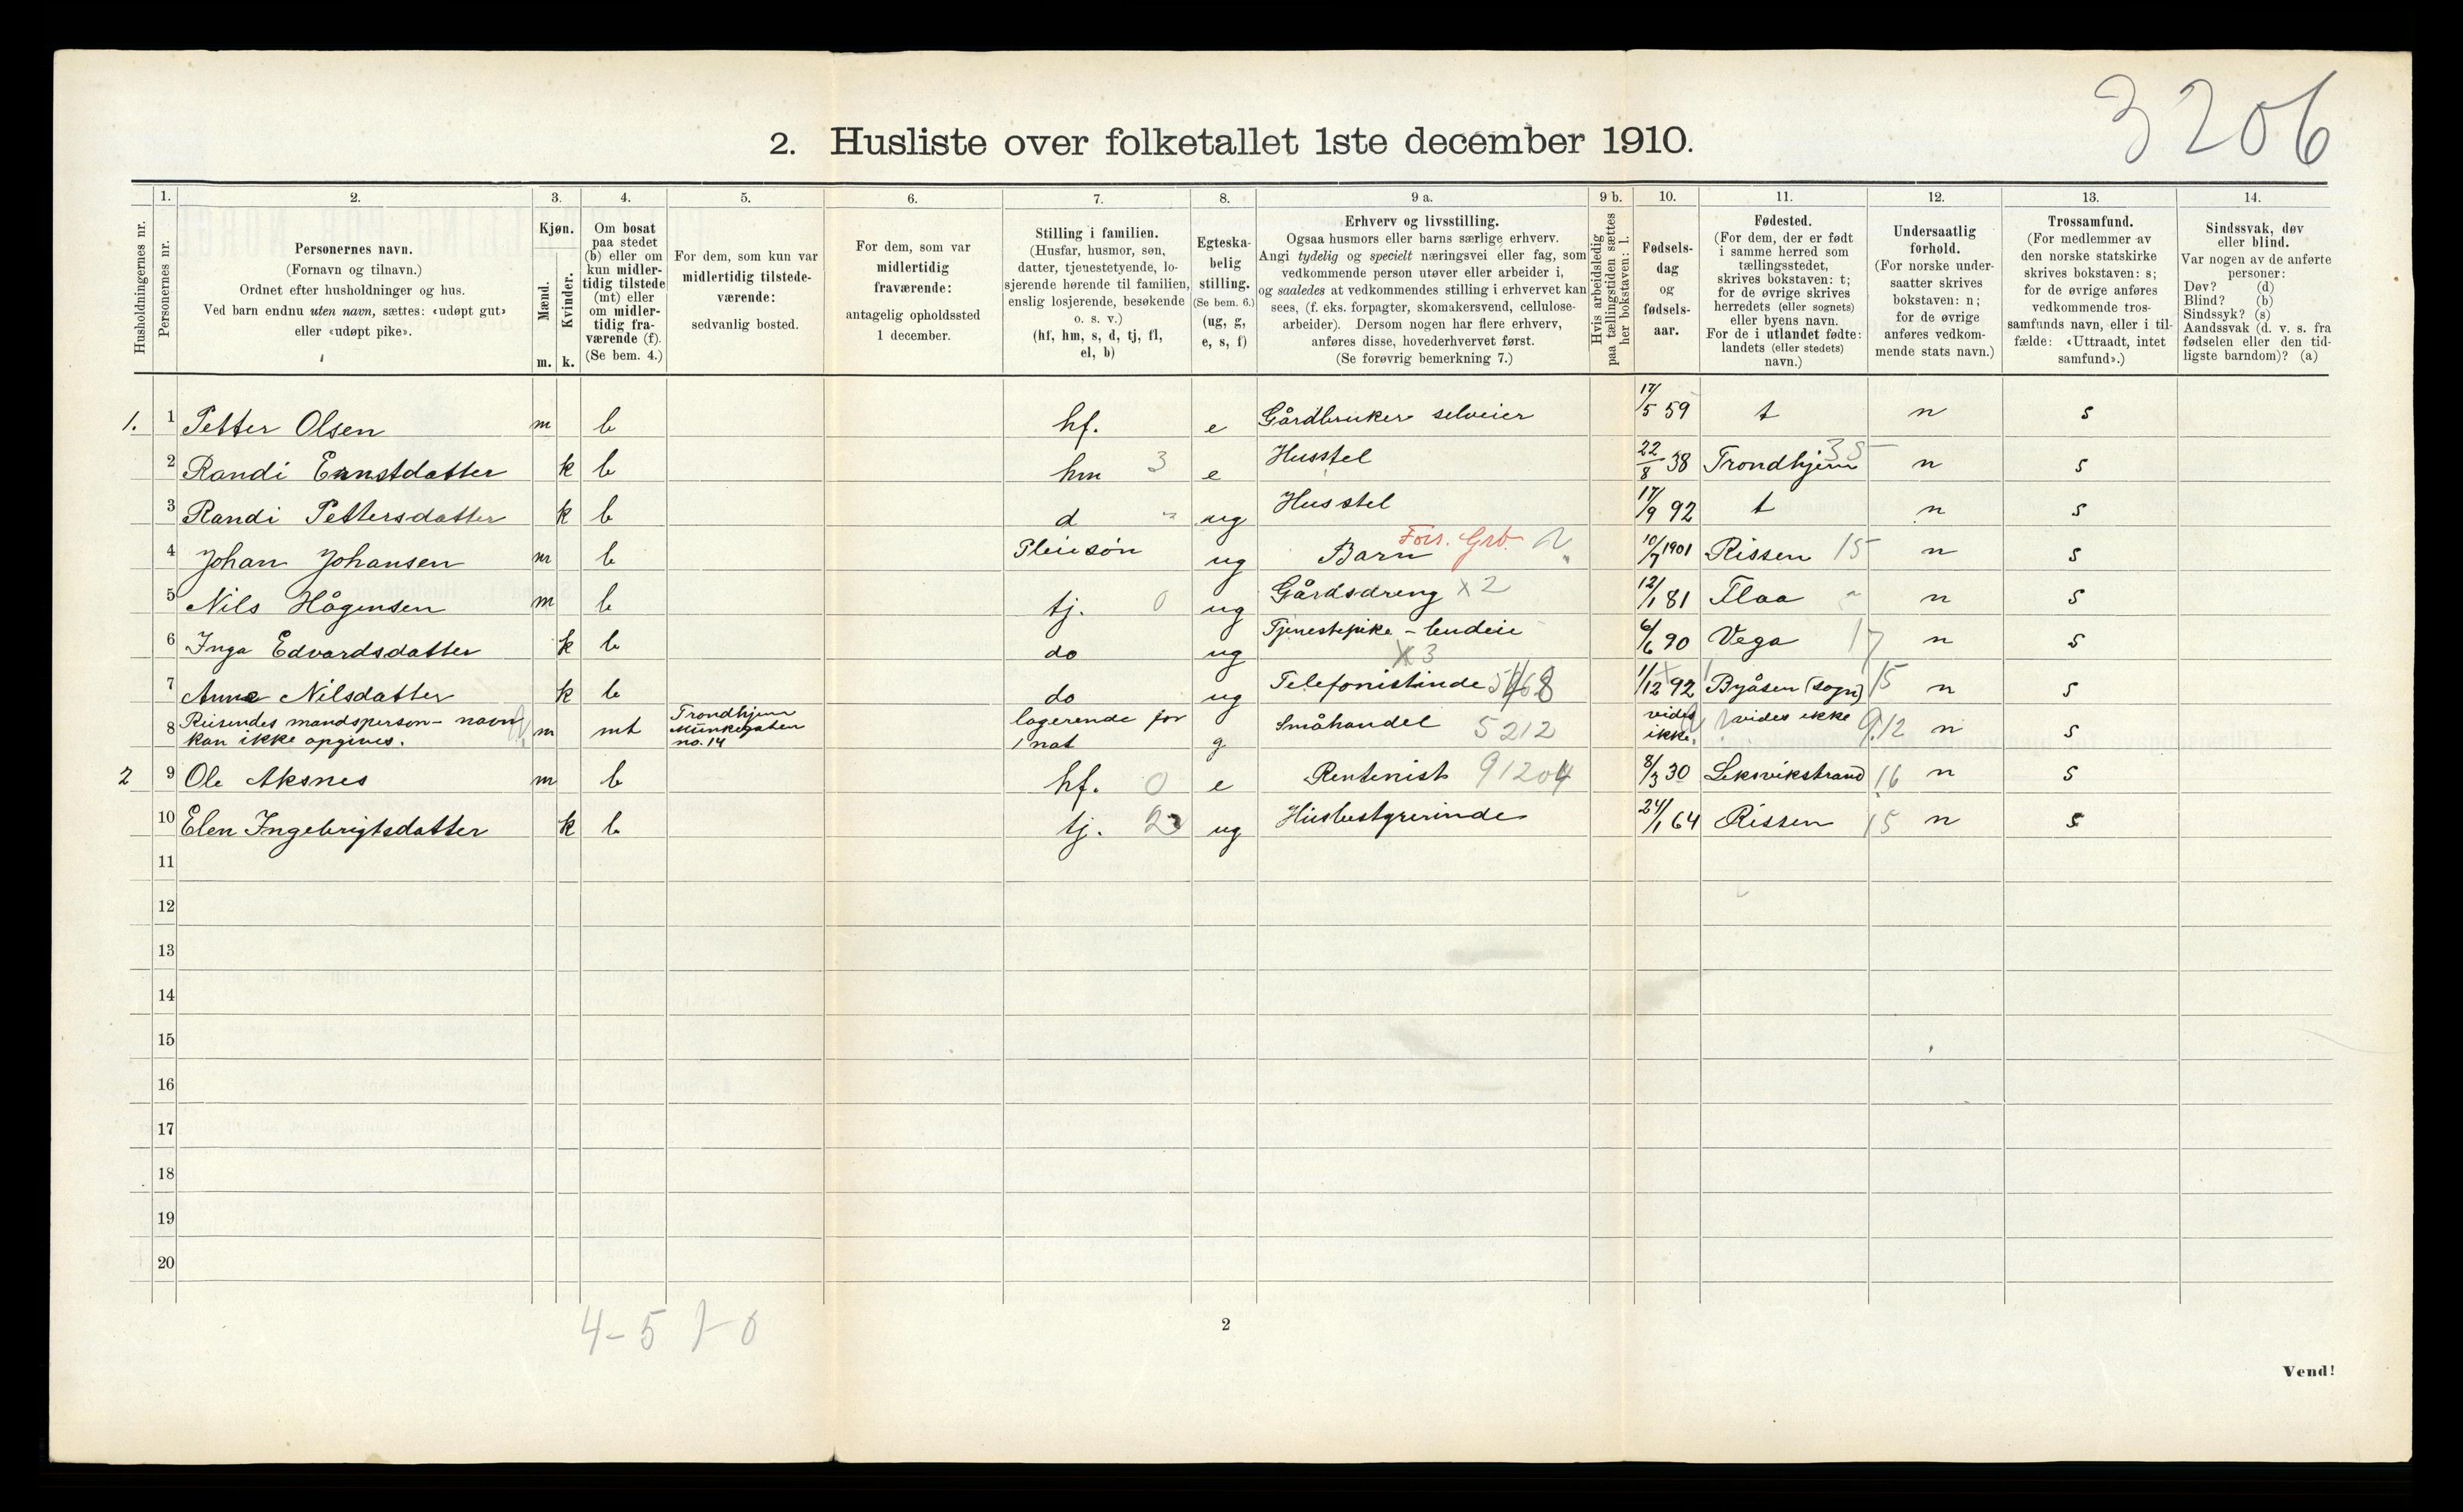 3206
2. Husliste over folketallet 1ste december 1910.
1. 2. 3. 4. 5. 6. 7. 8. 9 a. 9 b. 10. 11. 12. 13. 14.
Husholdningernes nr.
Personernes nr.
Personernes navn.
(Fornavn og tilnavn.)
Ordnet efter husholdninger og hus.
Ved barn endnu uten navn, sættes: «udøpt gut»
eller «udøpt pike».
Kjøn.
Mænd.
Kvinder.
m. k.
Om bosat
paa stedet
(b) eller om
kun midler-
tidig tilstede
(mt) eller
om midler-
tidig fra-
værende (f).
(Se bem. 4.)
For dem, som kun var
midlertidig tilstede-
værende:
sedvanlig bosted.
For dem, som var
midlertidig
fraværende:
antagelig opholdssted
1 december.
Stilling i familien.
(Husfar, husmor, søn,
datter, tjenestetyende, lo-
sjerende hørende til familien,
enslig losjerende, besøkende
o. s. v.)
(hf, hm, s, d, tj, fl,
el, b)
Egteska-
belig
stilling.
(Se bem. 6.)
(ug, g,
e, s, f)
Erhverv og livsstilling.
Ogsaa husmors eller barns særlige erhverv.
Angi tydelig og specielt næringsvei eller fag, som
vedkommende person utøver eller arbeider i,
og saaledes at vedkommendes stilling i erhvervet kan
sees, (f. eks. forpagter, skomakersvend, cellulose-
arbeider). Dersom nogen har flere erhverv,
anføres disse, hovederhvervet først.
(Se forøvrig bemerkning 7.)
Hvis arbeidsledig
paa tællingstiden sættes
her bokstaven: l.
Fødsels-
dag
og
fødsels-
aar.
Fødested.
(For dem, der er født
i samme herred som
tællingsstedet,
skrives bokstaven: t;
for de øvrige skrives
herredets (eller sognets)
eller byens navn.
For de i utlandet fødte:
landets (eller stedets)
navn.)
Undersaatlig
forhold.
(For norske under-
saatter skrives
bokstaven: n;
for de øvrige
anføres vedkom-
mende stats navn.)
Trossamfund.
(For medlemmer av
den norske statskirke
skrives bokstaven: s;
for de øvrige anføres
vedkommende tros-
samfunds navn, eller i til-
fælde: «Uttraadt, intet
samfund».)
Sindssvak, døv
eller blind.
Var nogen av de anførte
personer:
Døv? (d)
Blind? (b)
Sindssyk? (s)
Aandssvak (d. v. s. fra
fødselen eller den tid-
ligste barndom)? (a)
1. 1 Petter Olsen m b hf. e Gårdbruker selveier 17/5 59 t n s
2 Randi Ernstdatter k b hm 3 e Husstel 22/8 38 Trondhjem 35 n s
3 Randi Pettersdatter k b d " ug Husstel 17/9 92 t n s
4 Johan Johansen m b Pleiesøn ug Barn Fors. Grb. 10/7 1901 Rissen 15 n s
5 Nils Hågensen m b tj. 0 ug Gårdsdreng x 2 12/1 81 Flaa n s
6 Inga Edvardsdatter k b do ug Tjenestepike - budeie x 3 6/6 90 Vega 17 n s
7 Anna Nilsdatter k b do ug Telefonistinde 1/12 92 Byåsen (sogn) 15 n s
8 Reisendes mandsperson - navn
kan ikke opgives. m mt Trondhjem
Munkegaten
no. 14 logerende for
1 nat g Småhandel 5212 vides
ikke. vides ikke 9.12 n s
2 9 Ole Aksnes m b hf. 0 e Rentenist 91204 8/3 30 Leksvikstrand 16 n s
10 Elen Ingebrigtsdatter k b tj. 23 ug Husbestyrerinde 24/1 64 Rissen 15 n s
11
12
13
14
15
16
17
18
19
20
4-5 1-0
2
Vend!